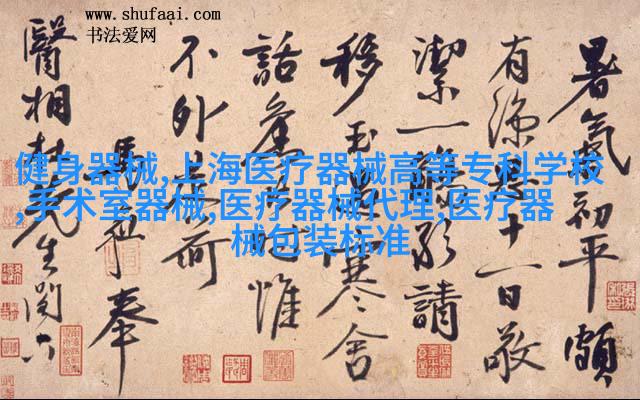 www.shufaai.com
书法爱网
健身器械,上海医疗器械高等专科学校
,手术室器械,医疗器械代理,医疗器
械包装标准
暑氣初平頗
有涼十一日敬
潔一請
移玉寒舍
話舊惟
不外是荷
馮奉
醫相杜先生閣下